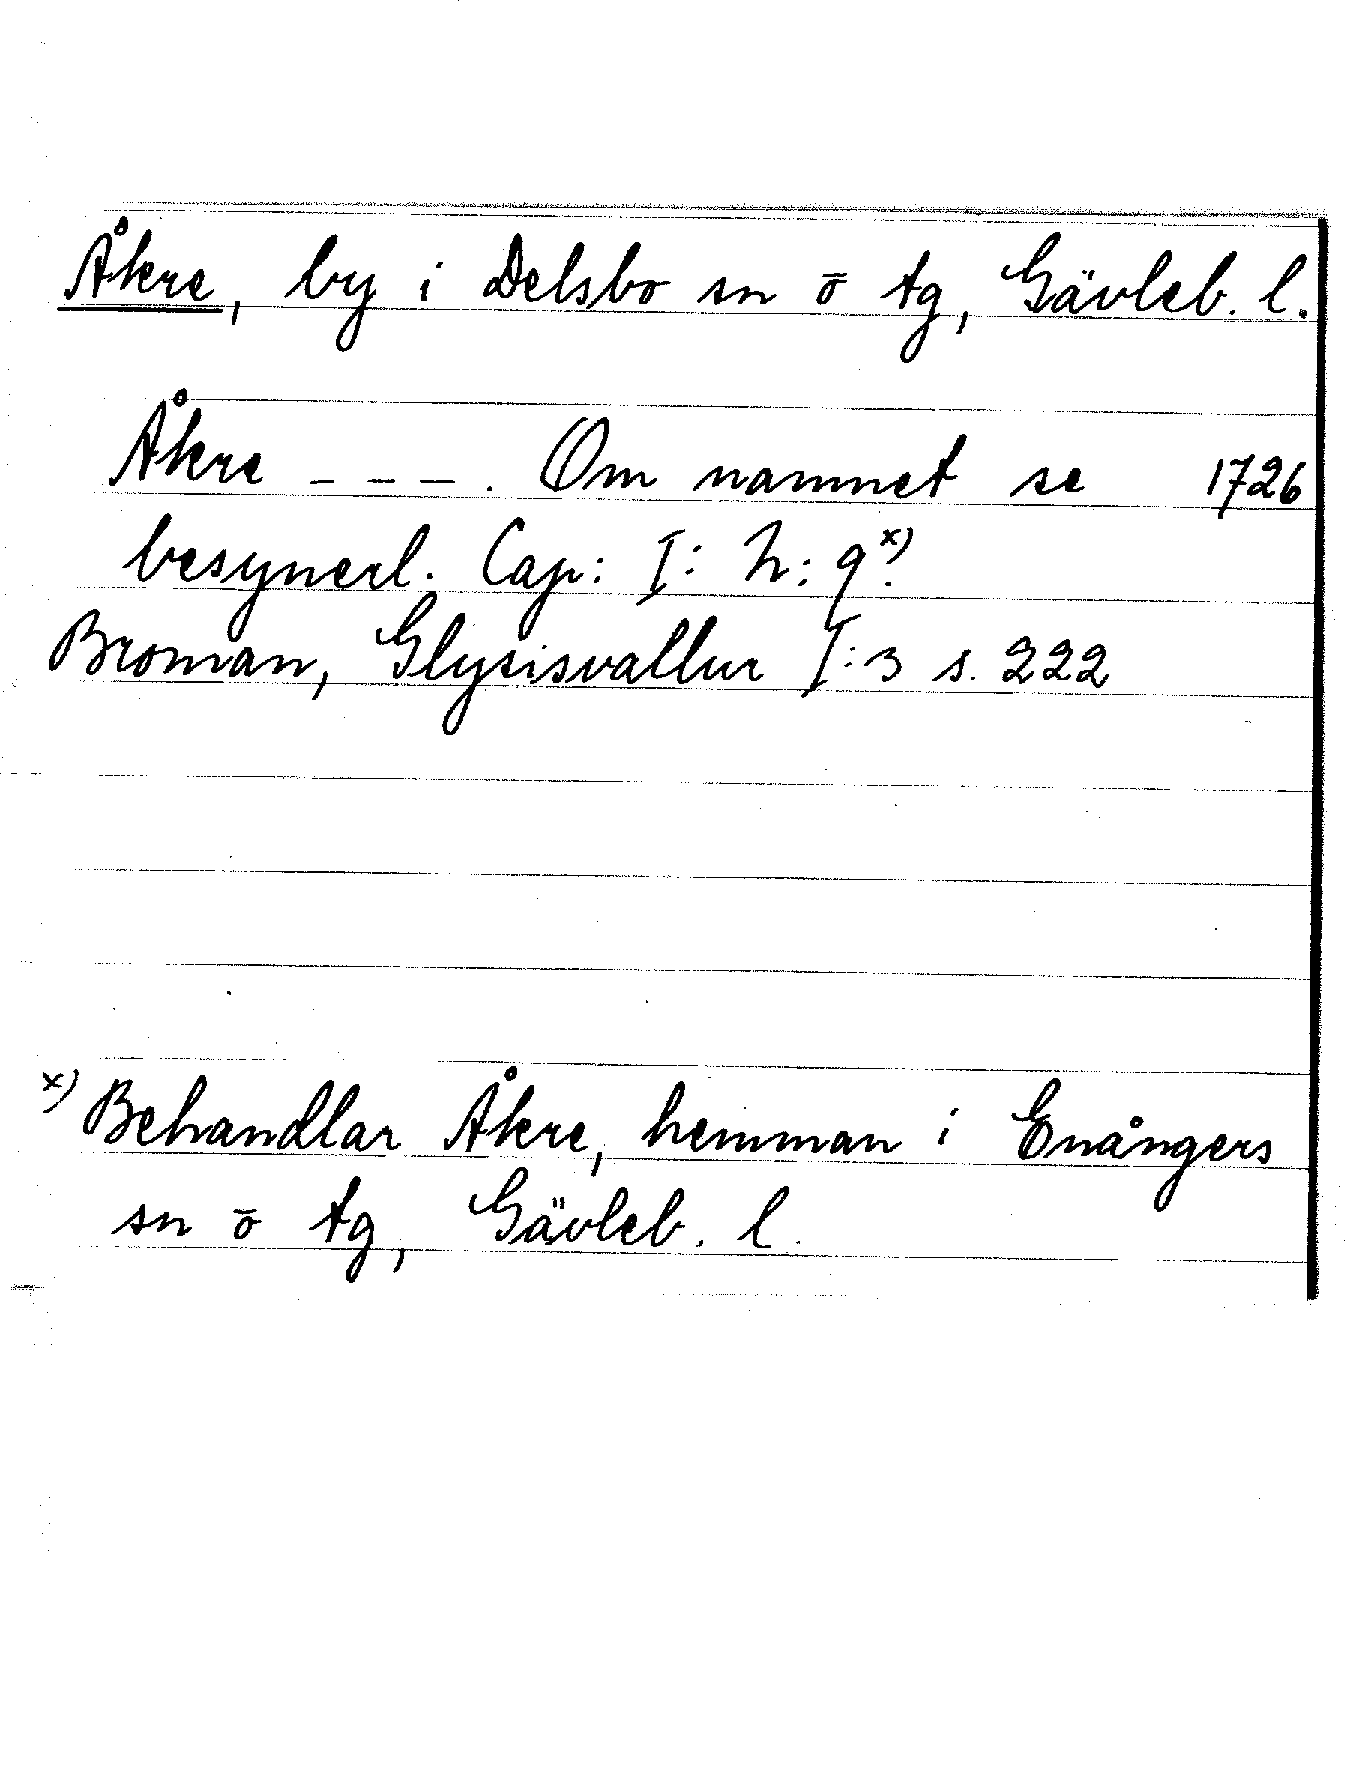 Åkre, by i Delsbo sn ō tg, Gävleb. l.
Åkre - - - . Om namnet se 1726
besynerl. Cap: I: h: 9.x)
Broman, Glysisvallur I:3 s. 222
x) Behandlar Åkre, hemman i Enångers
sn ō tg, Gävleb. l.